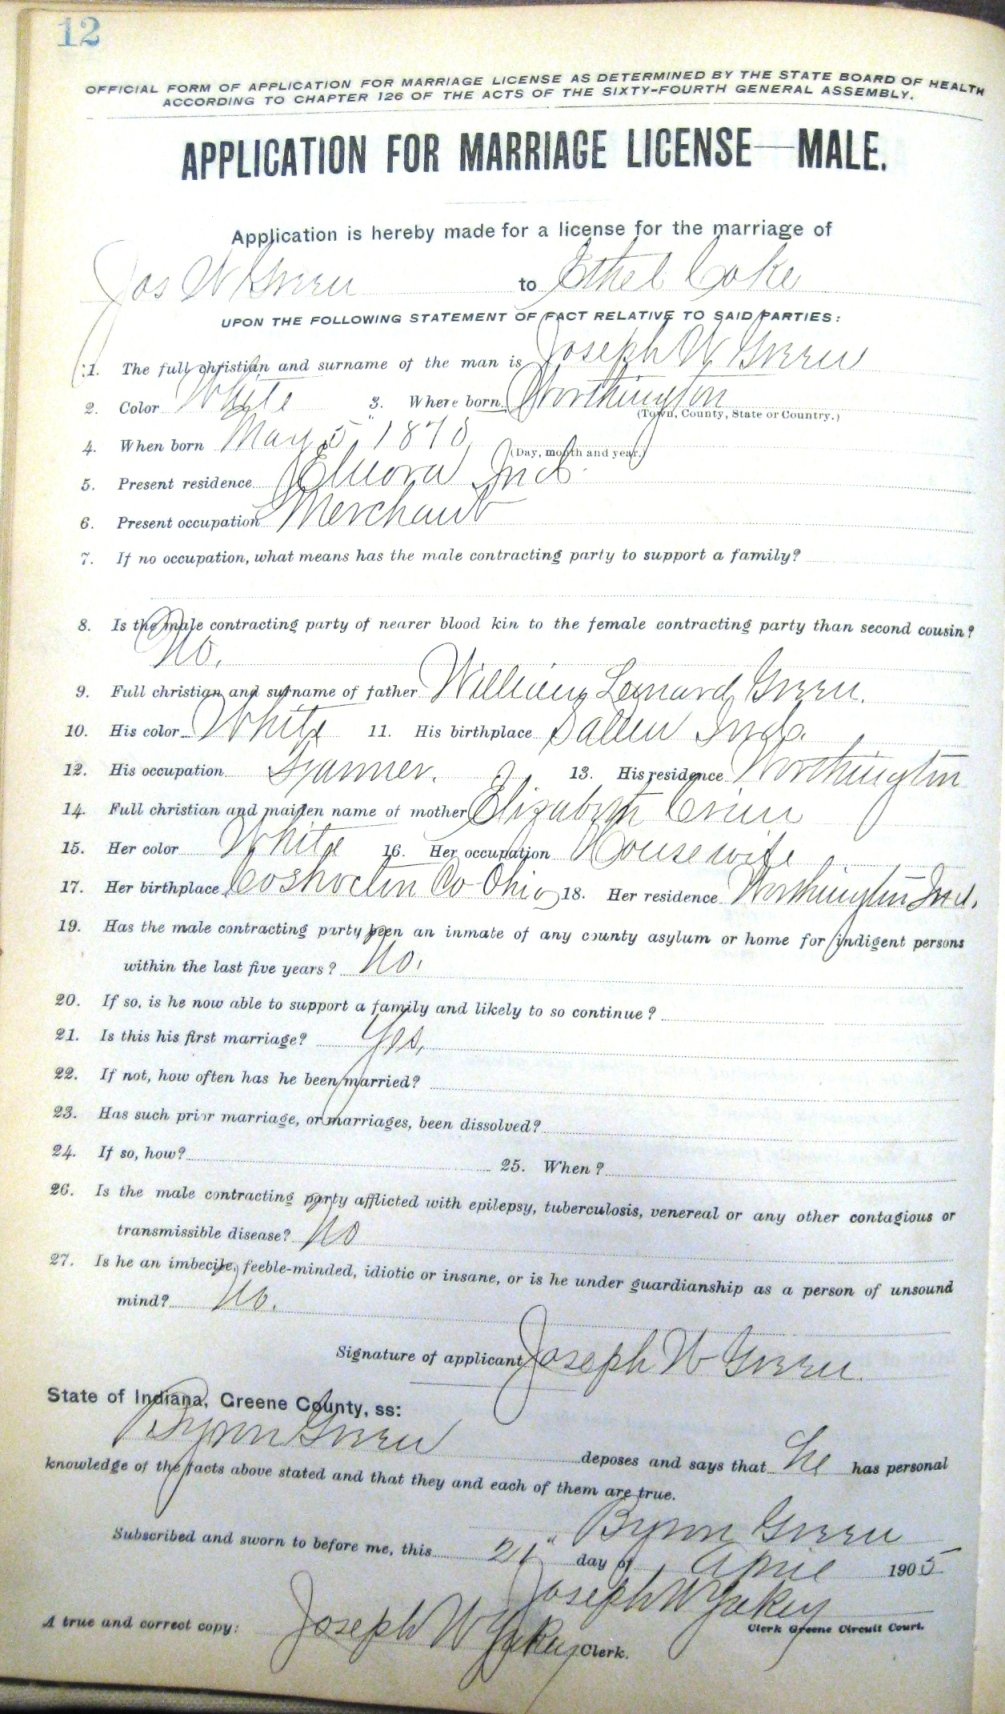 12
OFFICIAL FORM OF APPLICATION FOR MARRIAGE LICENSE AS DETERMINED BY THE STATE BOARD OF HEALTH
ACCORDING TO CHAPTER 126 OF THE ACTS OF THE SIXTY-FOURTH GENERAL ASSEMBLY.
APPLICATION FOR MARRIAGE LICENSE—MALE.
Application is hereby made for a license for the marriage of
Jos W Green to Ethel Coke
UPON THE FOLLOWING STATEMENT OF FACT RELATIVE TO SAID PARTIES:
1. The full christian and surname of the man is Joseph W Green
2. Color White 3. Where born Worthington
(Town, County, State or Country.)
4. When born May 5, 1878
(Day, month and year.)
5. Present residence Elnora Ind.
6. Present occupation Merchant
7. If no occupation, what means has the male contracting party to support a family?
8. Is the male contracting party of nearer blood kin to the female contracting party than second cousin?
No.
9. Full christian and surname of father William Leonard Green.
10. His color White 11. His birthplace Sallem Ind.
12. His occupation Farmer. 13. His residence Worthington
14. Full christian and maiden name of mother Elizabeth
15. Her color White 16. Her occupation Housewife
17. Her birthplace Coshocton Co Ohio 18. Her residence Worthington Ind.
19. Has the male contracting party been an inmate of any county asylum or home for indigent persons
within the last five years? No.
20. If so, is he now able to support a family and likely to so continue?
21. Is this his first marriage? Yes.
22. If not, how often has he been married?
23. Has such prior marriage, or marriages, been dissolved?
24. If so, how? 25. When?
26. Is the male contracting party afflicted with epilepsy, tuberculosis, venereal or any other contagious or
transmissible disease? No
27. Is he an imbecile, feeble-minded, idiotic or insane, or is he under guardianship as a person of unsound
mind? No.
Signature of applicant Joseph W Green.
State of Indiana, Greene County, ss:
Byron Green deposes and says that he has personal
knowledge of the facts above stated and that they and each of them are true.
Byron Green
Subscribed and sworn to before me, this 21" day of April 1905
Joseph W Yakey
Clerk Greene Circuit Court.
A true and correct copy: Joseph W Yakey Clerk.